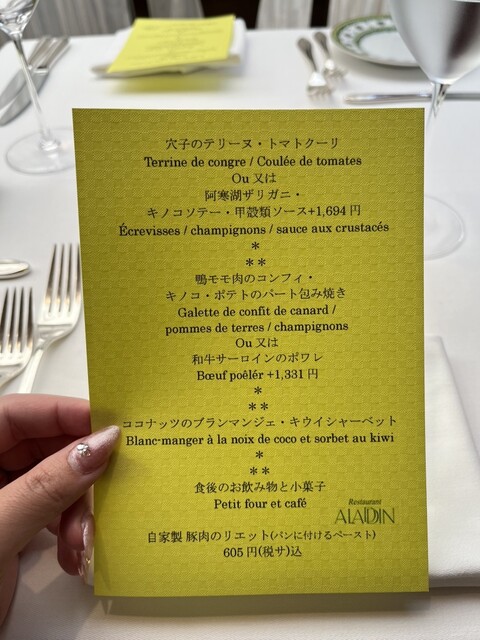 穴子のテリーヌ・トマトクーリ
Terrine de congre / Coulée de tomates
Ou 又は
阿寒湖ザリガニ・
キノコソテー・甲殻類ソース+1,694 円
Écrevisses / champignons / sauce aux crustacés
*
* *
鴨モモ肉のコンフィ・
キノコ・ポテトのパート包み焼き
Galette de confit de canard /
pommes de terres / champignons
Ou 又は
和牛サーロインのポワレ
Bœuf poêlér +1,331 円
*
* *
ココナッツのブランマンジェ・キウイシャーベット
Blanc-manger à la noix de coco et sorbet au kiwi
*
* *
食後のお飲み物と小菓子
Petit four et café
Restaurant
ALADDIN
自家製 豚肉のリエット(パンに付けるペースト)
605 円(税サ)込